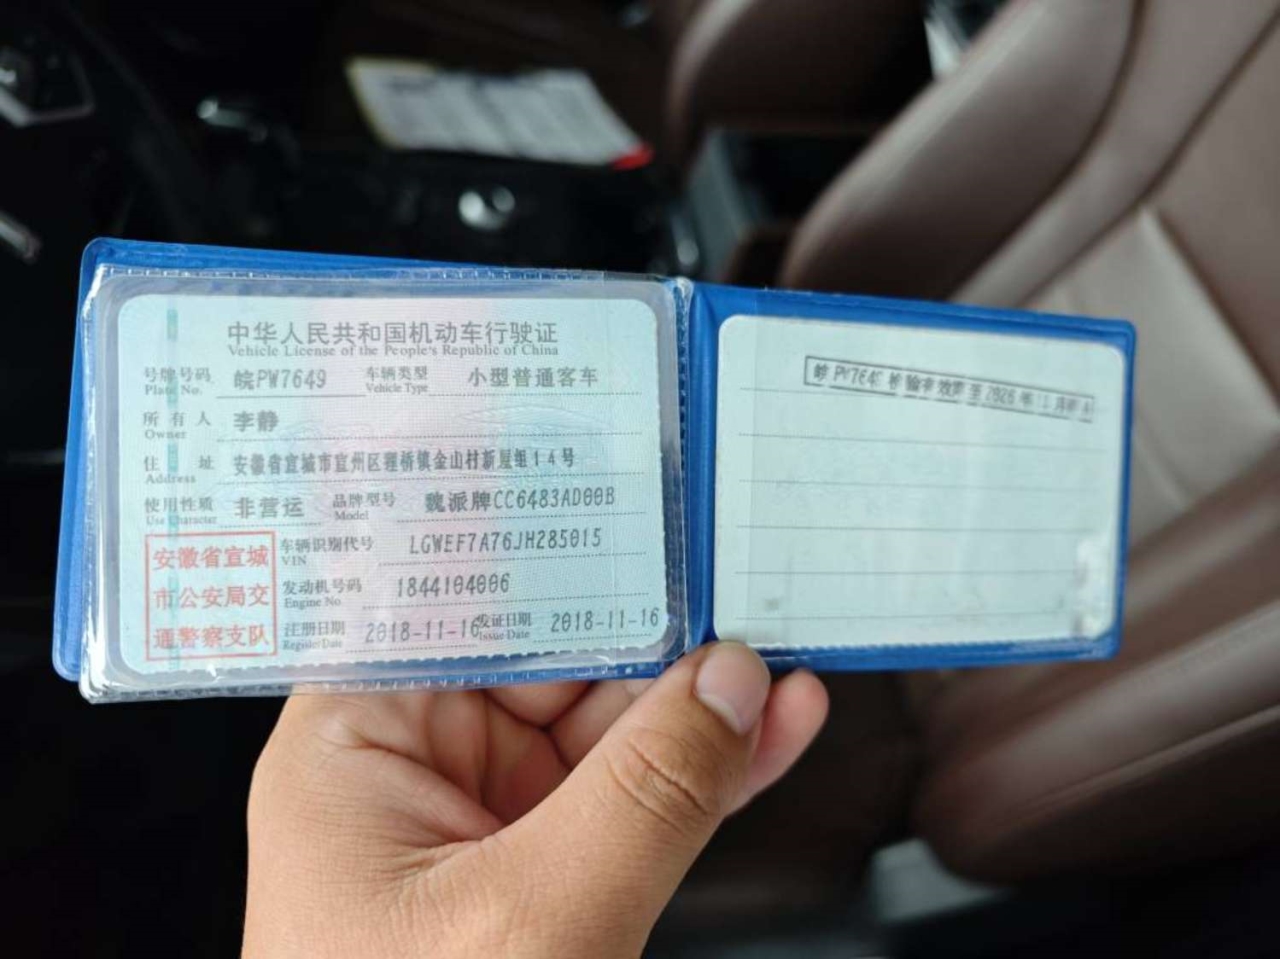 中华人民共和国机动车行驶证
Vehicle License of the People's Republic of China
号牌号码 皖PW7649 车辆类型 小型普通客车
Plate No. Vehicle Type
所有人 李静
Owner
住址 安徽省宣城市宣州区狸桥镇金山村新屋组14号
Address
使用性质 非营运 品牌型号 魏派牌CC6483AD00B
Use Character Model
安徽省宣城
市公安局交
通警察支队
车辆识别代号 LGWEF7A76JH285015
VIN
发动机号码 1844104006
Engine No.
注册日期 2018-11-16 发证日期 2018-11-16
Register Date Issue Date
检验有效期至2026年11月